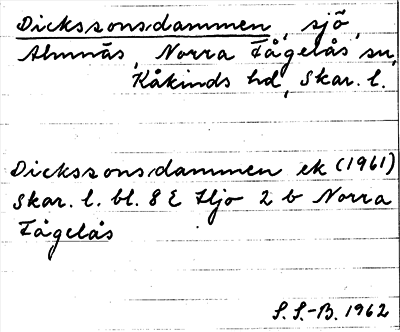 Dickssonsdammen, sjö,
Almnäs, Norra Fågelås sn,
Kåkinds hd, Skar. l.
Dickssonsdammen ek (1961)
Skar. l. bl. 8 E Hjo 2 b Norra
Fågelås
S. S.-B. 1962